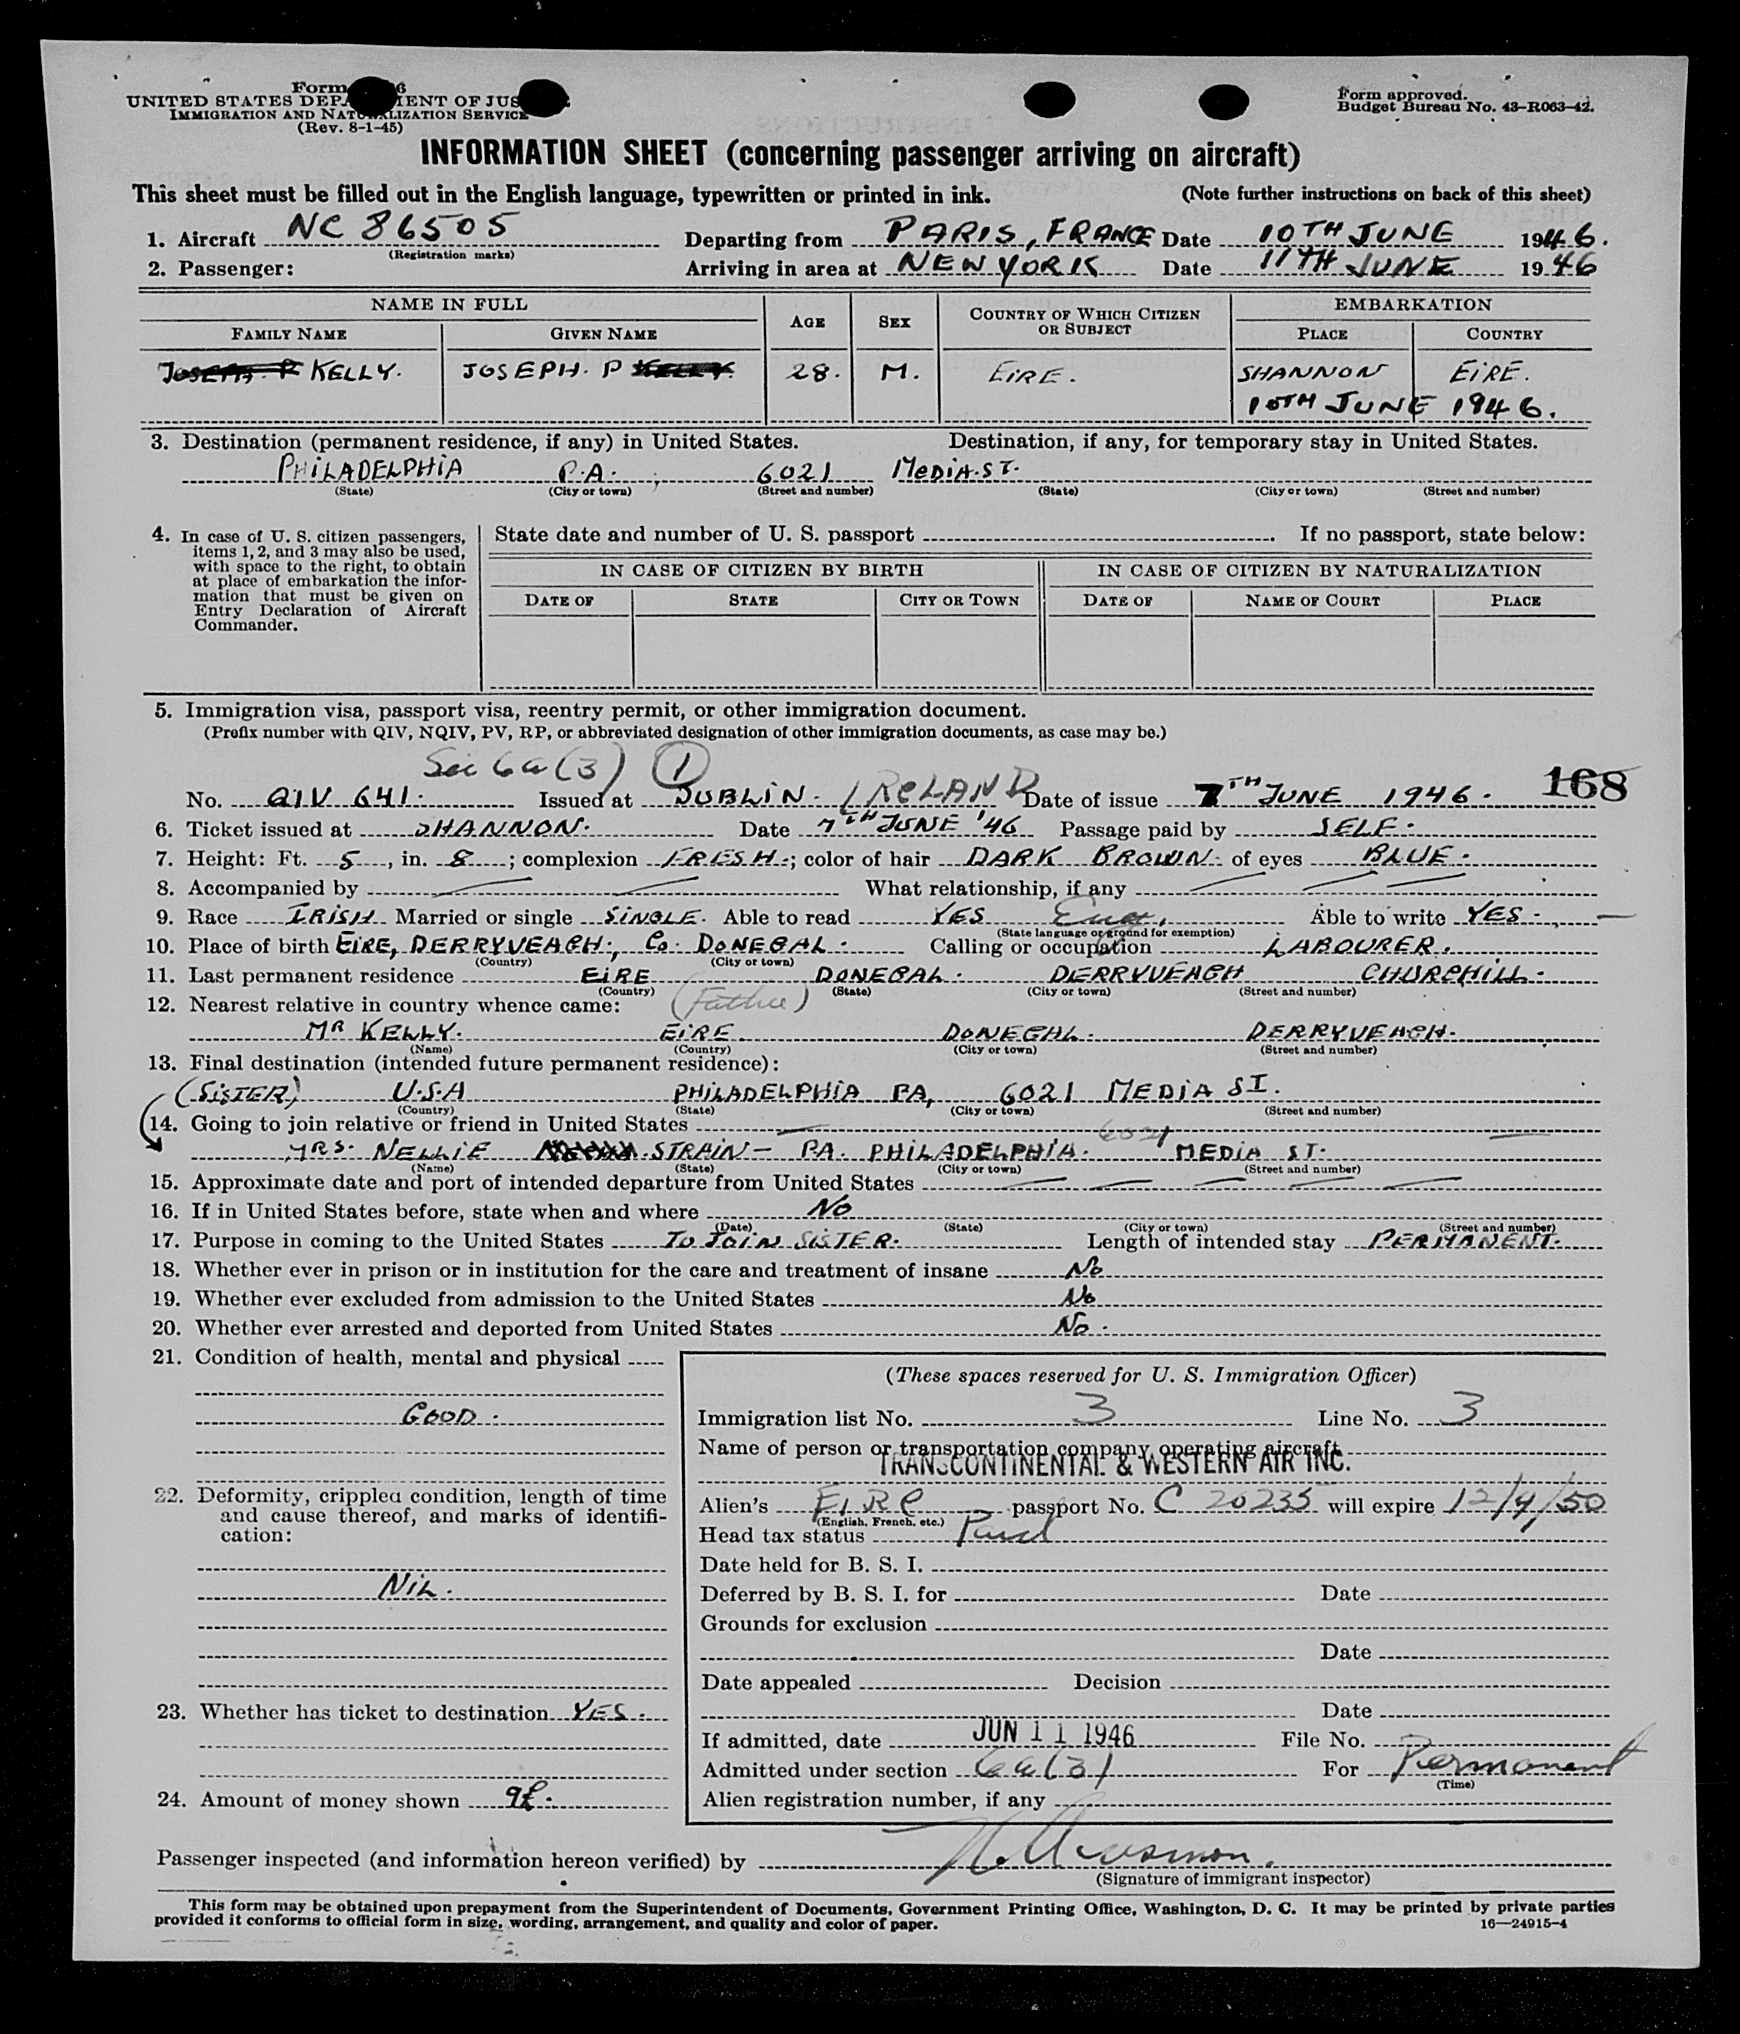 Form
UNITED STATES DEPARTMENT OF JUSTICE
IMMIGRATION AND NATURALIZATION SERVICE
(Rev. 8-1-45)
Form approved.
Budget Bureau No. 43-R063-42.
INFORMATION SHEET (concerning passenger arriving on aircraft)
This sheet must be filled out in the English language, typewritten or printed in ink. (Note further instructions on back of this sheet)
1. Aircraft NC 86505 Departing from PARIS, FRANCE Date 10TH JUNE 1946.
(Registration marks)
2. Passenger: Arriving in area at NEW YORK Date 11TH JUNE 1946
NAME IN FULL AGE SEX COUNTRY OF WHICH CITIZEN OR SUBJECT EMBARKATION
FAMILY NAME GIVEN NAME PLACE COUNTRY
JOSEPH. P KELLY. JOSEPH. P KELLY. 28. M. EIRE. SHANNON EIRE.
10TH JUNE 1946.
3. Destination (permanent residence, if any) in United States. Destination, if any, for temporary stay in United States.
PHILADELPHIA P.A. ; 6021 MEDIA.ST.
(State) (City or town) (Street and number) (State) (City or town) (Street and number)
4. In case of U. S. citizen passengers, items 1, 2, and 3 may also be used, with space to the right, to obtain at place of embarkation the information that must be given on Entry Declaration of Aircraft Commander.
State date and number of U. S. passport . If no passport, state below:
IN CASE OF CITIZEN BY BIRTH IN CASE OF CITIZEN BY NATURALIZATION
DATE OF STATE CITY OR TOWN DATE OF NAME OF COURT PLACE
5. Immigration visa, passport visa, reentry permit, or other immigration document.
(Prefix number with QIV, NQIV, PV, RP, or abbreviated designation of other immigration documents, as case may be.)
Sec 6a(3) 1
No. QIV 641. Issued at DUBLIN. IRELAND Date of issue 7TH JUNE 1946. 168
6. Ticket issued at SHANNON. Date 7TH JUNE '46 Passage paid by SELF.
7. Height: Ft. 5, in. 8; complexion FRESH.; color of hair DARK BROWN. of eyes BLUE.
8. Accompanied by What relationship, if any
9. Race IRISH Married or single SINGLE. Able to read YES Eng. Able to write YES.
(State language or ground for exemption)
10. Place of birth EIRE, DERRYVEAGH., Co. DONEGAL. Calling or occupation LABOURER.
(Country) (City or town)
11. Last permanent residence EIRE DONEGAL. DERRYVEAGH CHURCHILL.
(Country) (State) (City or town) (Street and number)
12. Nearest relative in country whence came: (Father)
MR KELLY. EIRE DONEGAL. DERRYVEAGH.
(Name) (Country) (City or town) (Street and number)
13. Final destination (intended future permanent residence):
(SISTER) U.S.A PHILADELPHIA PA, 6021 MEDIA ST.
(Country) (State) (City or town) (Street and number)
14. Going to join relative or friend in United States
6021
MRS. NELLIE STRAIN - PA. PHILADELPHIA. MEDIA ST.
(Name) (State) (City or town) (Street and number)
15. Approximate date and port of intended departure from United States
16. If in United States before, state when and where NO
(Date) (State) (City or town) (Street and number)
17. Purpose in coming to the United States TO JOIN SISTER. Length of intended stay PERMANENT.
18. Whether ever in prison or in institution for the care and treatment of insane NO
19. Whether ever excluded from admission to the United States NO
20. Whether ever arrested and deported from United States NO.
21. Condition of health, mental and physical
GOOD.
22. Deformity, crippled condition, length of time and cause thereof, and marks of identification:
NIL.
23. Whether has ticket to destination YES.
24. Amount of money shown 9£.
(These spaces reserved for U. S. Immigration Officer)
Immigration list No. 3 Line No. 3
Name of person or transportation company operating aircraft
TRANSCONTINENTAL & WESTERN AIR INC.
Alien's Eire passport No. C 20235 will expire 12/4/50
(English, French, etc.)
Head tax status Paid
Date held for B. S. I.
Deferred by B. S. I. for Date
Grounds for exclusion
Date
Date appealed Decision
Date
If admitted, date JUN 11 1946 File No.
Admitted under section 6a(3) For Permanent
(Time)
Alien registration number, if any
Passenger inspected (and information hereon verified) by
(Signature of immigrant inspector)
This form may be obtained upon prepayment from the Superintendent of Documents, Government Printing Office, Washington, D. C. It may be printed by private parties
provided it conforms to official form in size, wording, arrangement, and quality and color of paper. 16—24915-4